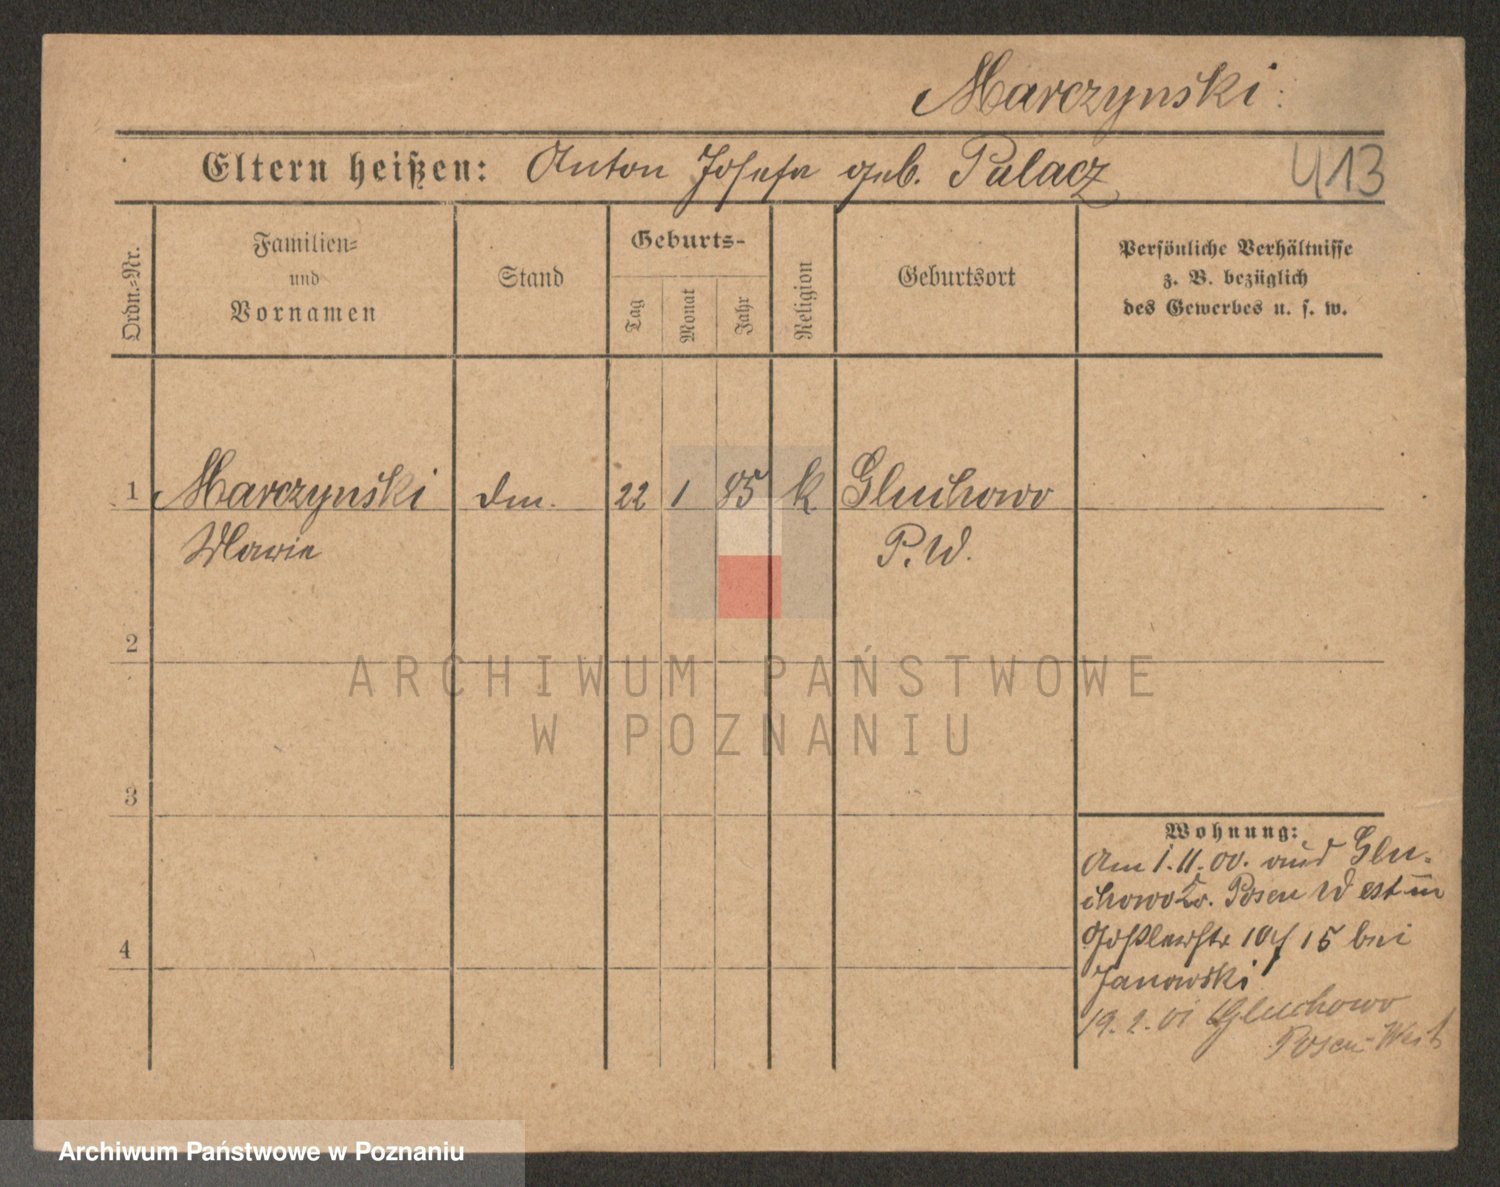 Marczynski
Eltern heißen: Anton Josefa geb. Palacz
413
Ordn.-Nr.
Familien-
und
Vornamen
Stand
Geburts-
Tag
Monat
Jahr
Religion
Geburtsort
Persönliche Verhältnisse
z. B. bezüglich
des Gewerbes u. s. w.
1 Marczynski dm. 22 1 85 k Gluchowo
Marie P. W.
2
ARCHIWUM PAŃSTWOWE
W POZNANIU
3
Wohnung:
Am 1.11.00. aus Glu-
chowo Kr. Posen West in
Goßlerstr 10 15 bei
Janowski
4
19.2.01 Gluchowo
Posen-West
Archiwum Państwowe w Poznaniu